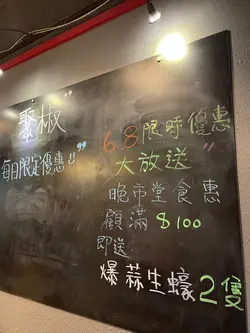 "聚椒"
每日限定優惠!!
"6.8限時優惠
大放送"
晚市堂食惠
顧滿$100
即送
爆蒜生蠔2隻